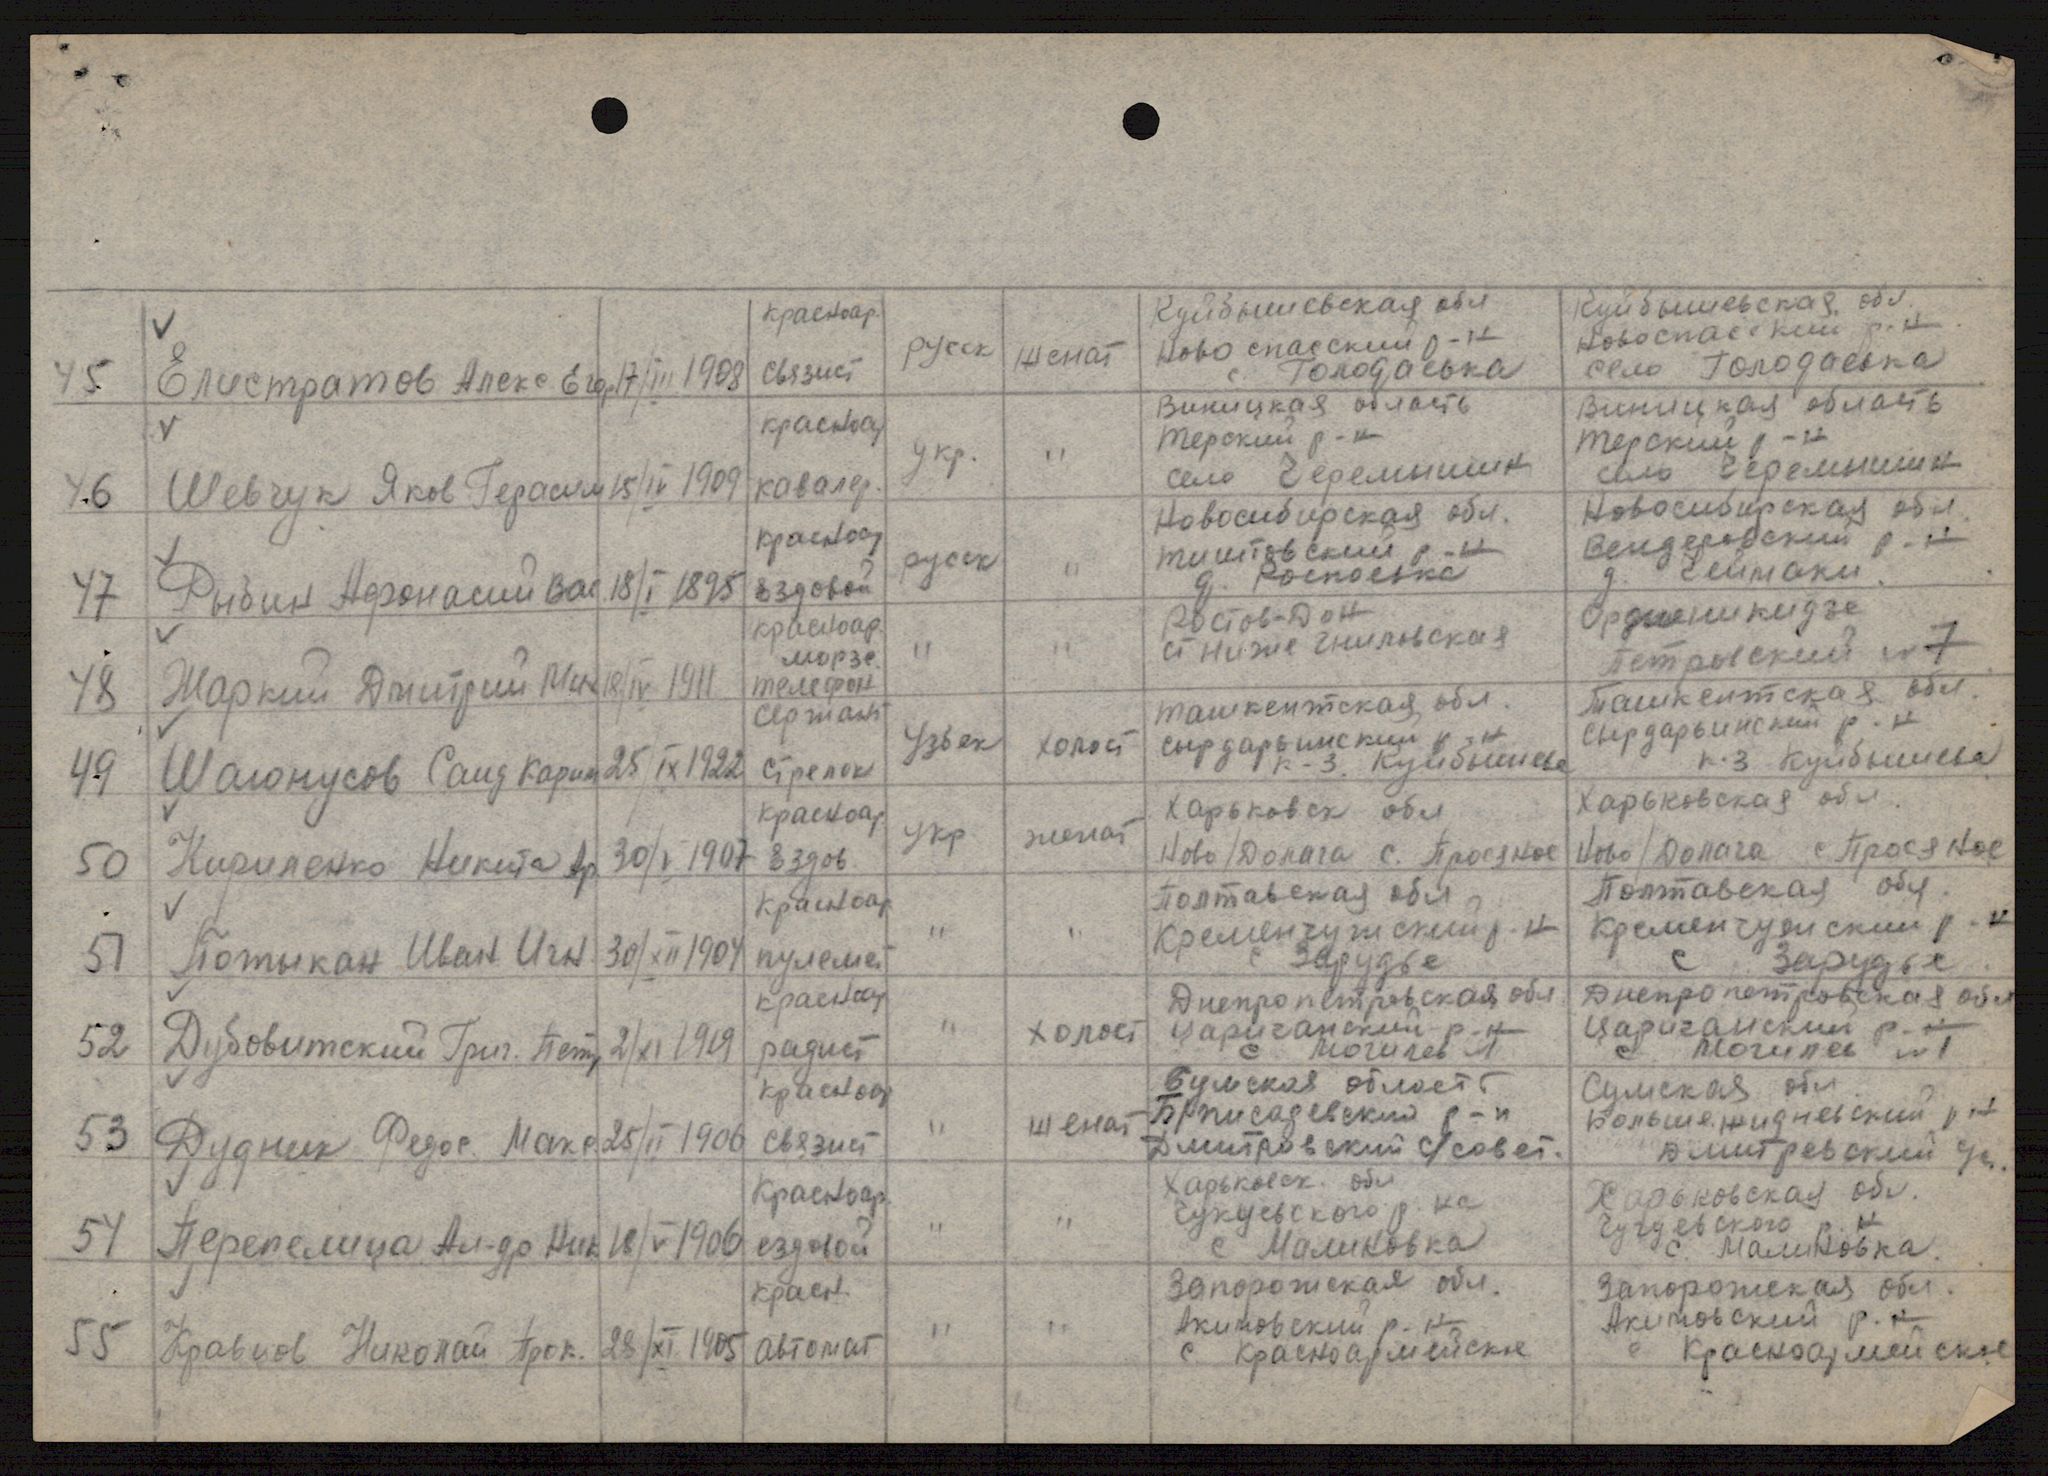 45 ✓ Елистратов Алекс Егор 17/III 1908 красноар. связист русск женат Куйбышевская обл Новоспасский р-н с. Голодаевка Куйбышевская обл. Новоспасский р-н село Голодаевка
46 ✓ Шевчук Яков Герасим 15/IV 1909 красноар кавалер. укр. " Виницкая область Терский р-н село Черемышин Виницкая область Терский р-н село Черемышин
47 ✓ Рыбин Афонасий Вас 18/I 1895 красноар ездовой русск " Новосибирская обл. р-н д. Новосибирская обл. р-н д.
48 ✓ Жаркий Дмитрий Мих 18/IV 1911 красноар. морзе. телефон " " Ростов-Дон ст Ниже Гниловская Орджоникидзе Петровский № 7
49 ✓ Шагюнусов Саид Карим 25/IX 1922 Сержант стрелок Узбек холост Ташкентская обл. Сырдарьинский р-н к-з. Куйбышева Ташкентская обл. Сырдарьинский р-н к-з Куйбышева
50 ✓ Кириленко Никита Ар 30/V 1907 красноар ездов. Укр женат Харьковск обл Ново/Долага с. Просяное Харьковская обл. Ново/Долага с Просяное
51 ✓ Потыкан Иван Игн. 30/XII 1904 красноар пулемет " " Полтавская обл Кременчужский р-н с Зарудье Полтавская обл. Кременчужский р-н с Зарудье
52 ✓ Дубовитский Григ. Петр 2/XI 1919 красноар радист " холост Днепропетровская обл Царичанский р-н с Могилев 1 Днепропетровская обл Царичанский р-н с Могилев №1
53 ✓ Дудник Федос. Макс. 25/II 1906 красноар связист " женат Сумская область р-н Дмитровский с/совет. Сумская обл р-н Дмитревский
54 ✓ Перепелица Ал-др Ник 18/V 1906 Красноар. ездовой " " Харьковск. обл Чугуевского р. на с Малиновка Харьковская обл. Чугуевского р. н с. Малиновка.
55 ✓ Кравцов Николай Прок. 28/XI 1905 Красн. автомат " " Запорожская обл. Акимовский р-н с Красноармейское Запорожская обл. Акимовский р-н с Красноармейское